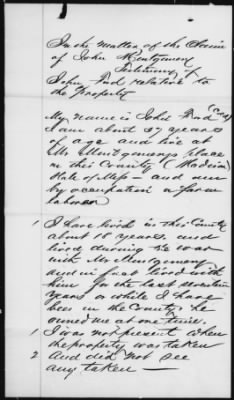 In the matter of the Claim
of John Montgomery
Testimony of
John Ford relative to
the property
My name is John Ford (Col)
I am about 37 years
of age and live at
Mr Montgomerys place
in this County (Madison)
State of Miss - and am
by occupation a farm
laborer
1 I have lived in this County
about 18 years and
lived during the war
with Mr Montgomery
and in fact lived with
him for the last seventeen
years or while I have
been in the County. he
owned me at one time.
1 I was not present when
the property was taken
2 And did not see
any taken —